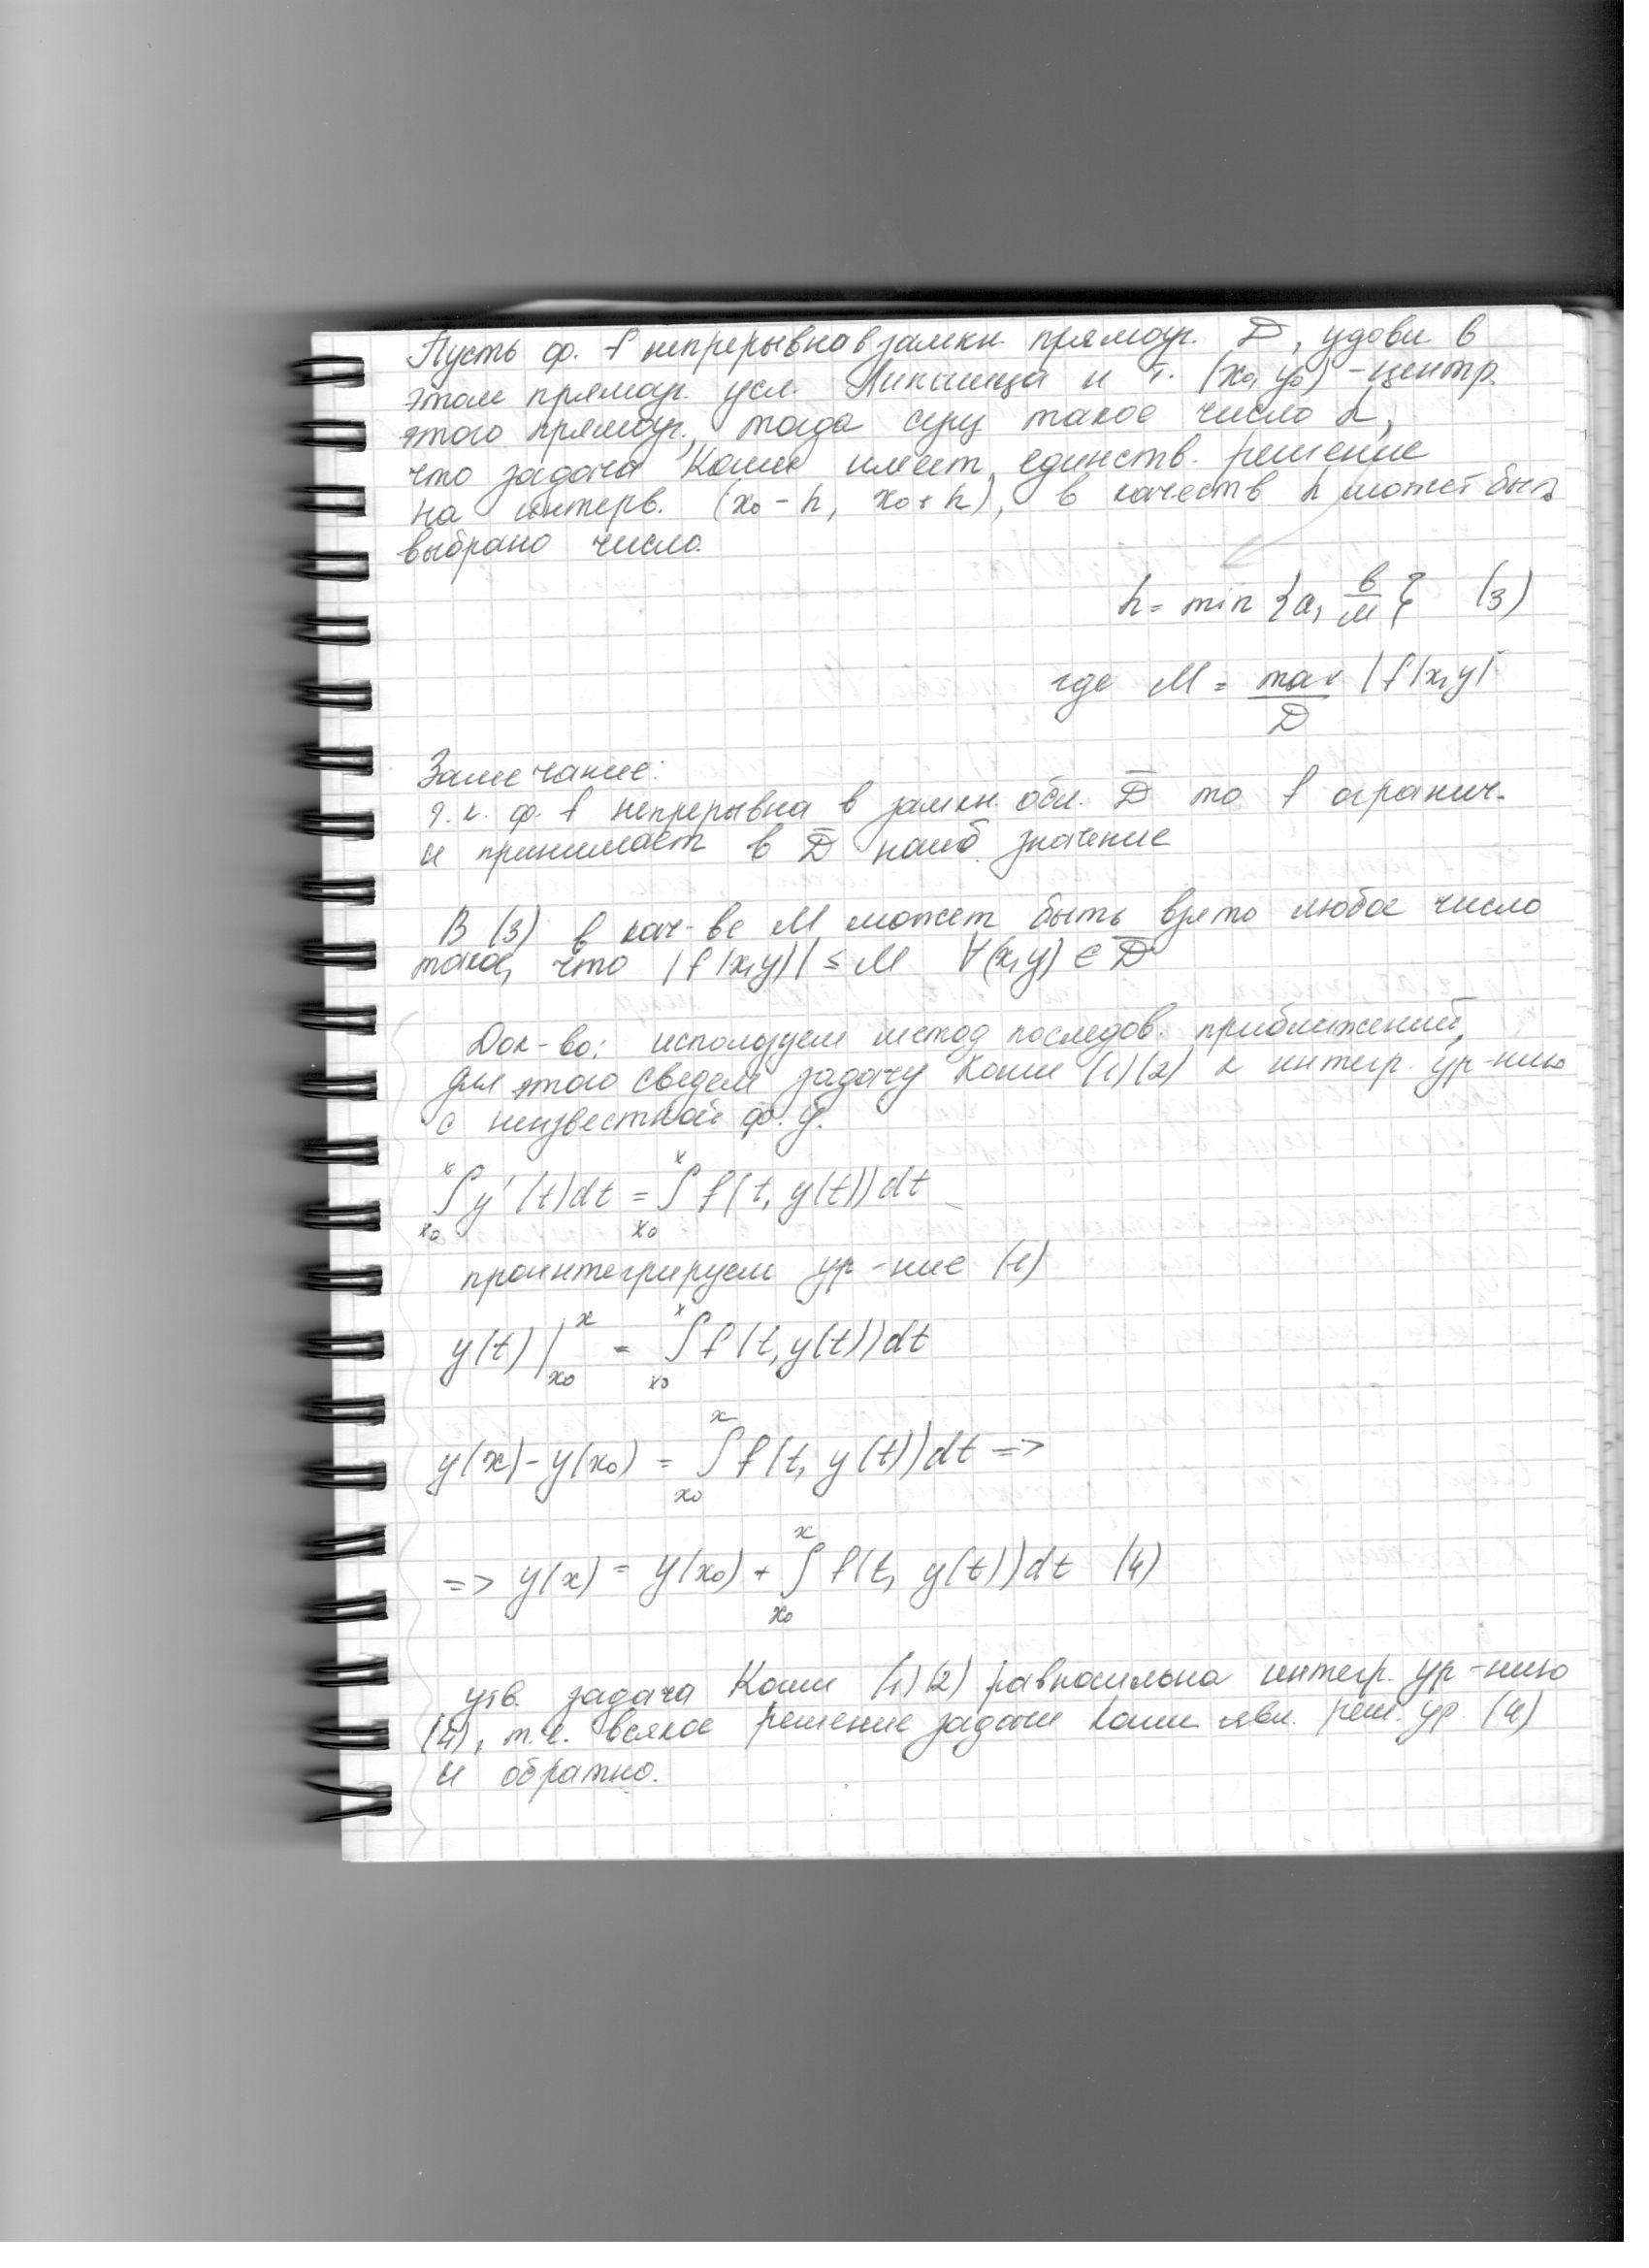 Пусть ф. f непрерывна в замкн. прямоуг. D̅, удовл. в
этом прямоуг. усл. Липшица и т. (x₀, y₀) - центр.
этого прямоуг., тогда сущ такое число h,
что задача Коши имеет единств. решение
на интерв. (x₀ - h, x₀ + h), в качеств h может быть
выбрано число.
h = min {a, в/M} (3)
где M = max |f(x,y)|
D̅
Замечание:
т.к. ф. f непрерывна в замкн. обл. D̅ то f огранич.
и принимает в D̅ наиб. значение
В (3) в кач-ве M может быть взято любое число
такое, что |f(x,y)| ≤ M ∀(x,y) ∈ D̅
Док-во: используем метод последов. приближений,
для этого сведем задачу Коши (1)(2) к интегр. ур-нию
с неизвестной ф. y.
∫ₓ₀ˣ y'(t)dt = ∫ₓ₀ˣ f(t, y(t))dt
проинтегрируем ур-ние (1)
y(t)|ₓ₀ˣ = ∫ₓ₀ˣ f(t, y(t))dt
y(x) - y(x₀) = ∫ₓ₀ˣ f(t, y(t))dt =>
=> y(x) = y(x₀) + ∫ₓ₀ˣ f(t, y(t))dt (4)
утв. задача Коши (1)(2) равносильна интегр. ур-нию
(4), т.е. всякое решение задачи Коши явл. реш. ур. (4)
и обратно.